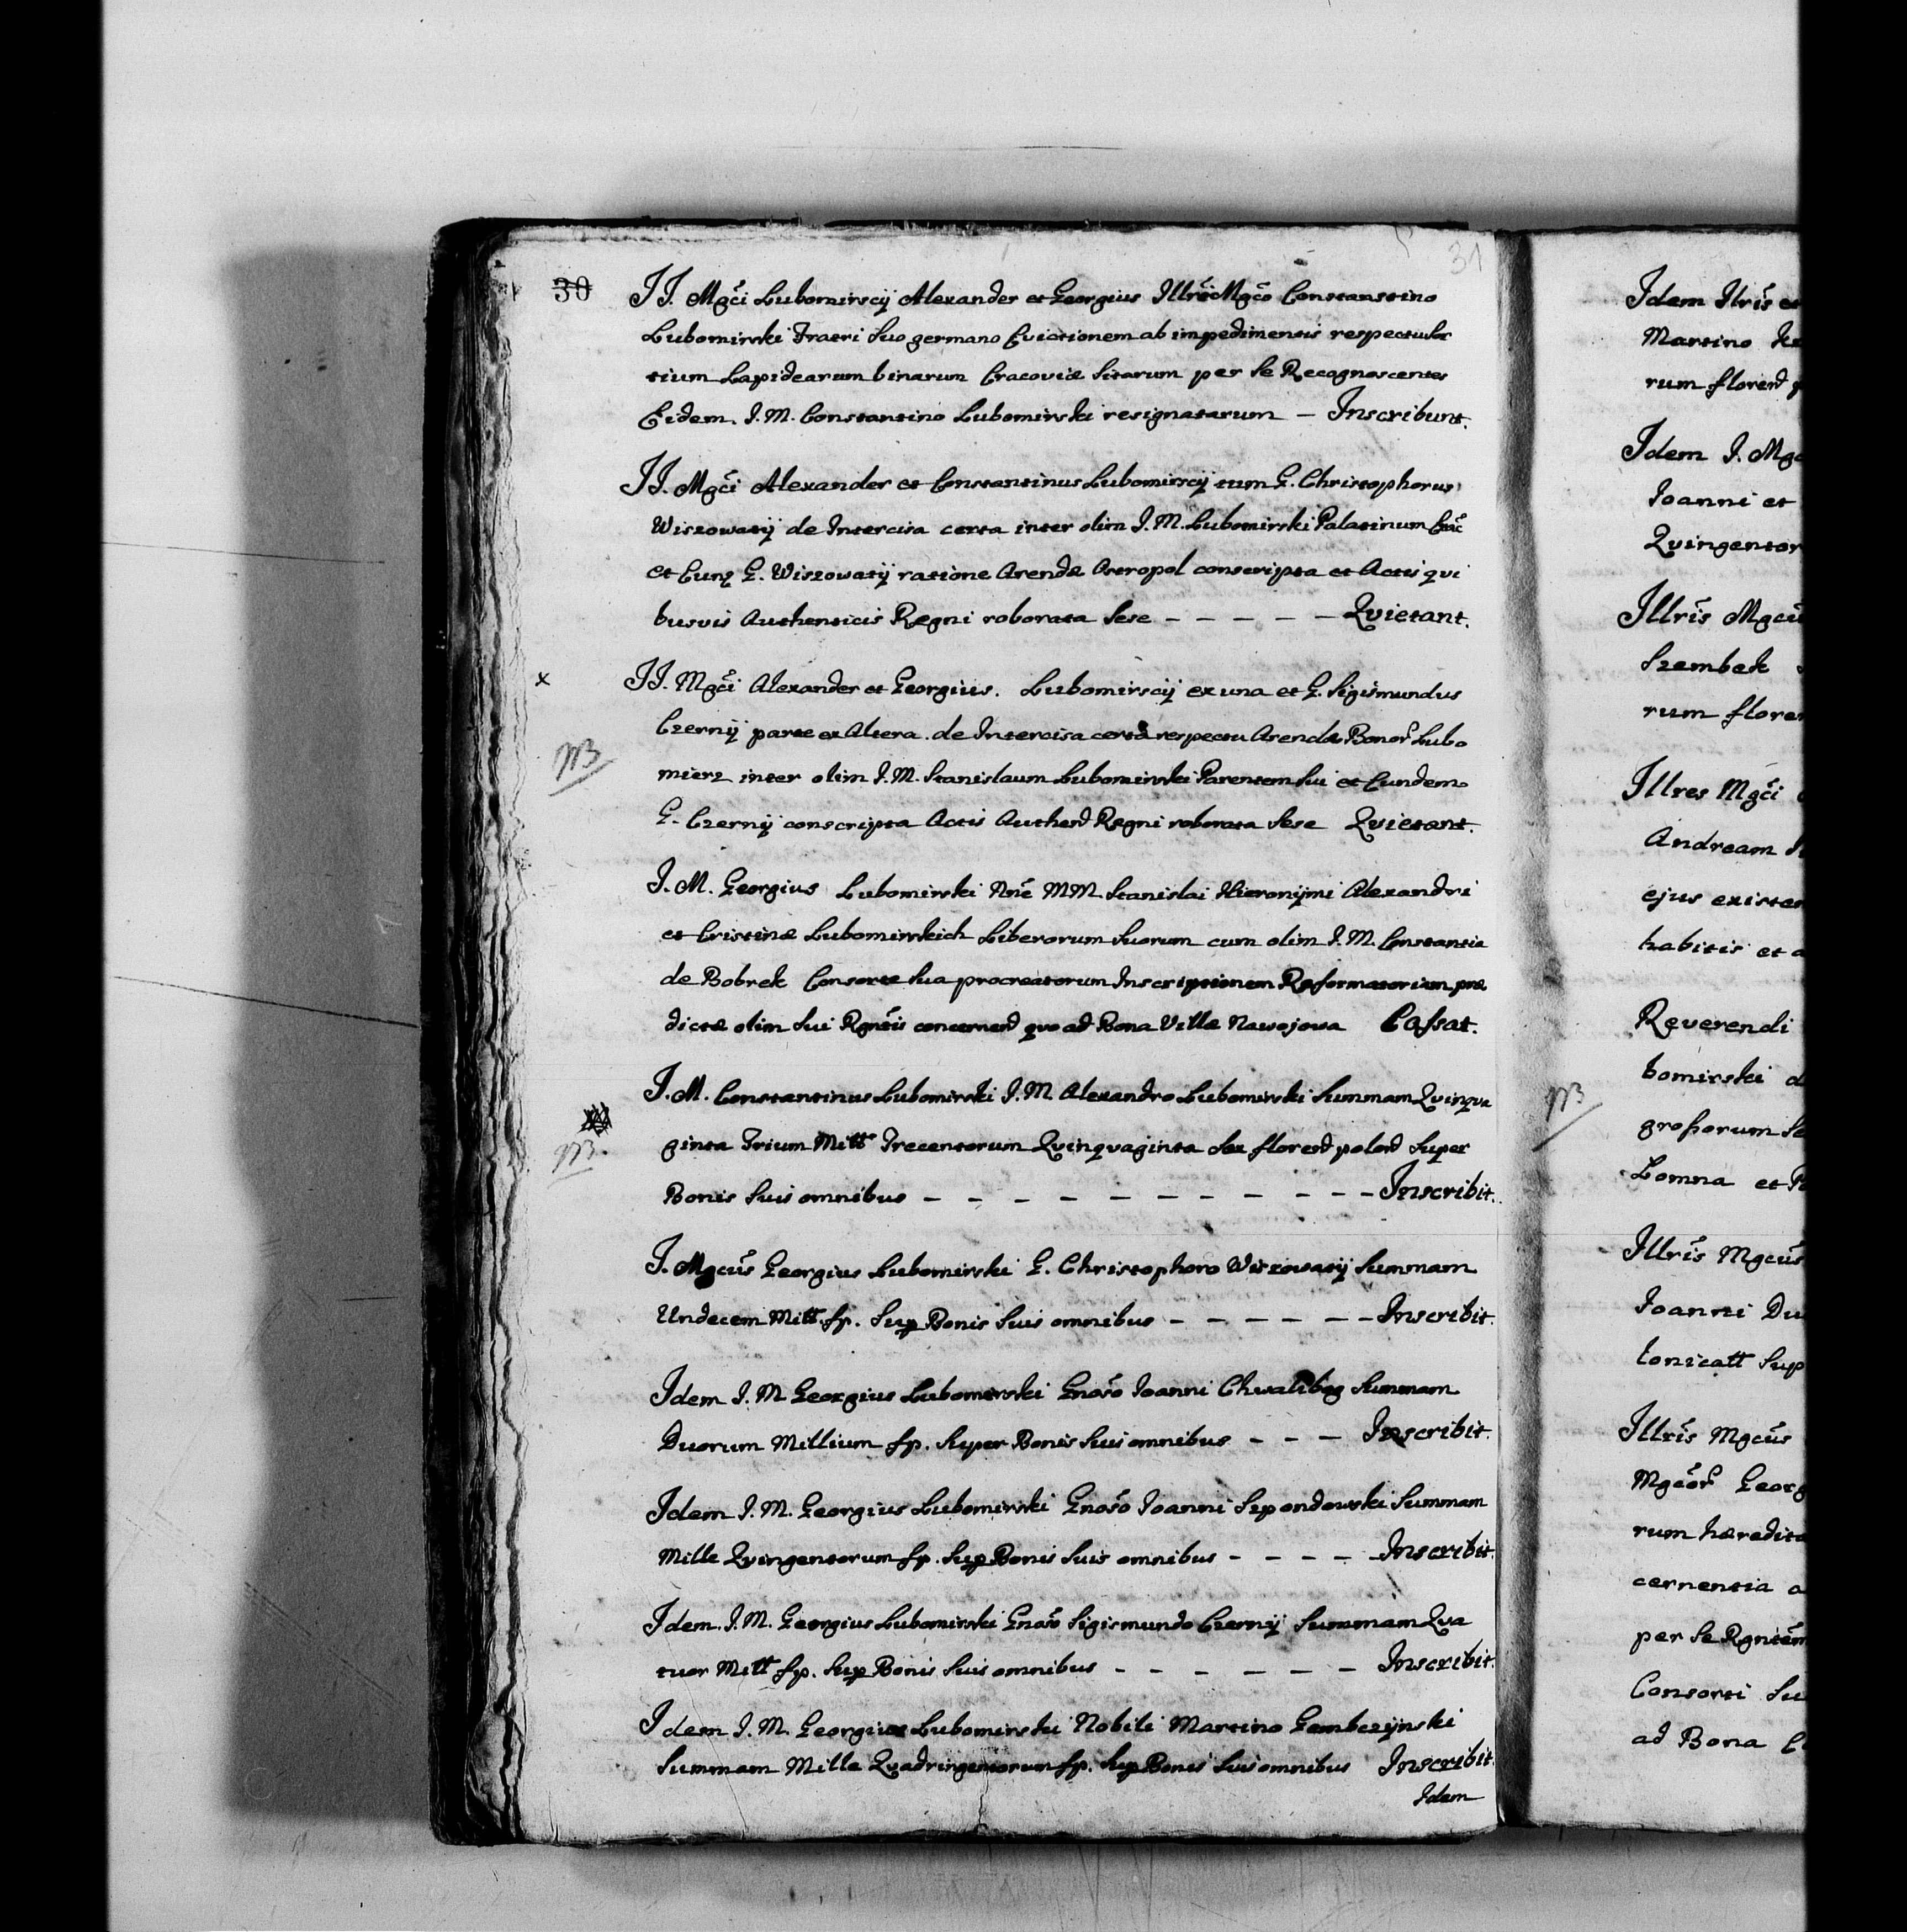 31
30
JJ. Mgči Lubomirscij Alexander et Georgius Illrři Mgčo Constantino
Lubomirski Fratri Suo germano Evictionem ab impedimentis respectu
tium Lapidearum binarum Cracoviæ Sitarum per Se Recognoscentes
Eidem. J. M. Constantino Lubomirski resignatarum — Inscribunt.
JJ. Mgči Alexander et Constantinus Lubomirscij tum G. Christophorus
Wiszowatij de Intercisa certa inter olim J. M. Lubomirski Palatinum Crač
et Eunq G. Wiszowatij ratione Arendæ Ostropol conscripta et Actis qvi
busvis Authenticis Regni roborata Sese – – – – – Qvietant.
x
JJ. Mgči Alexander et Georgius. Lubomirscij ex una et G. Sigismundus
Czernij parte ex Altera. de Intercisa certa respectu Arendæ Bonor Lubo
NB
mierz inter olim J. M. Stanislaum Lubomirski Parentem Sui et Eundem
G. Czernij conscripta Actis Authend Regni roborata Sese Qvietant.
J. M. Georgius Lubomirski Nne MM. Stanislai Hieronijmi Alexandri
et Cristinæ Lubomirskich Liberorum Suorum cum olim J. M. Constantia
de Bobrek Consorte Sua procreatorum Inscriptionem Reformatoriam præ
dictæ olim Sui Rgntis concernend qvo ad Bona Villæ Nawojowa Cassat.
J. M. Constantinus Lubomirski J. M. Alexandro Lubomirski Summam Qvinqva
NB.
ginta Trium Mill Trecentorum Qvinqvaginta Sex florend polond Super
Bonis Suis omnibus – – – – – – – – – – – Inscribit.
J. Mgcus Georgius Lubomirski G. Christophoro Wiszowatij Summam
Undecem Mill. fp. Sup Bonis Suis omnibus – – – – – – Inscribit.
Idem J. M. Georgius Lubomirski Gnoso Ioanni Chwalibog Summam
Duorum Millium fp. Super Bonis Suis omnibus – – – Inscribit.
Idem J. M. Georgius Lubomirski Gnoso Ioanni Szpondowski Summam
Mille Qvingentorum fp. Sup Bonis Suis omnibus – – – – – Inscribit.
Idem. J. M. Georgius Lubomirski Gnoso Sigismundo Czernij Summam Qva
tuor Mill fp. Sup Bonis Suis omnibus – – – – – – Inscribit.
Idem J. M. Georgius Lubomirski Nobili Martino Gembczijnski
Summam Mille Qvadringentorum fp. Sup Bonis Suis omnibus Inscribit.
Idem
Idem Ilris et
Martino
rum florend
Idem J. Mgc
Ioanni et
Qvingentor
Illris Mgcu
Szembek
rum flore
Illres Mgči
Andream
ejus existen
habitis et a
Reverendi
bomirski
NB
grossorum
Lomna et
Illris Mgcus
Ioanni Du
tonicall Sup
Illris Mgcus
Mgcor Georg
rum hæredita
cernentia
per Se Rgntem
Consorti Su
ad Bona